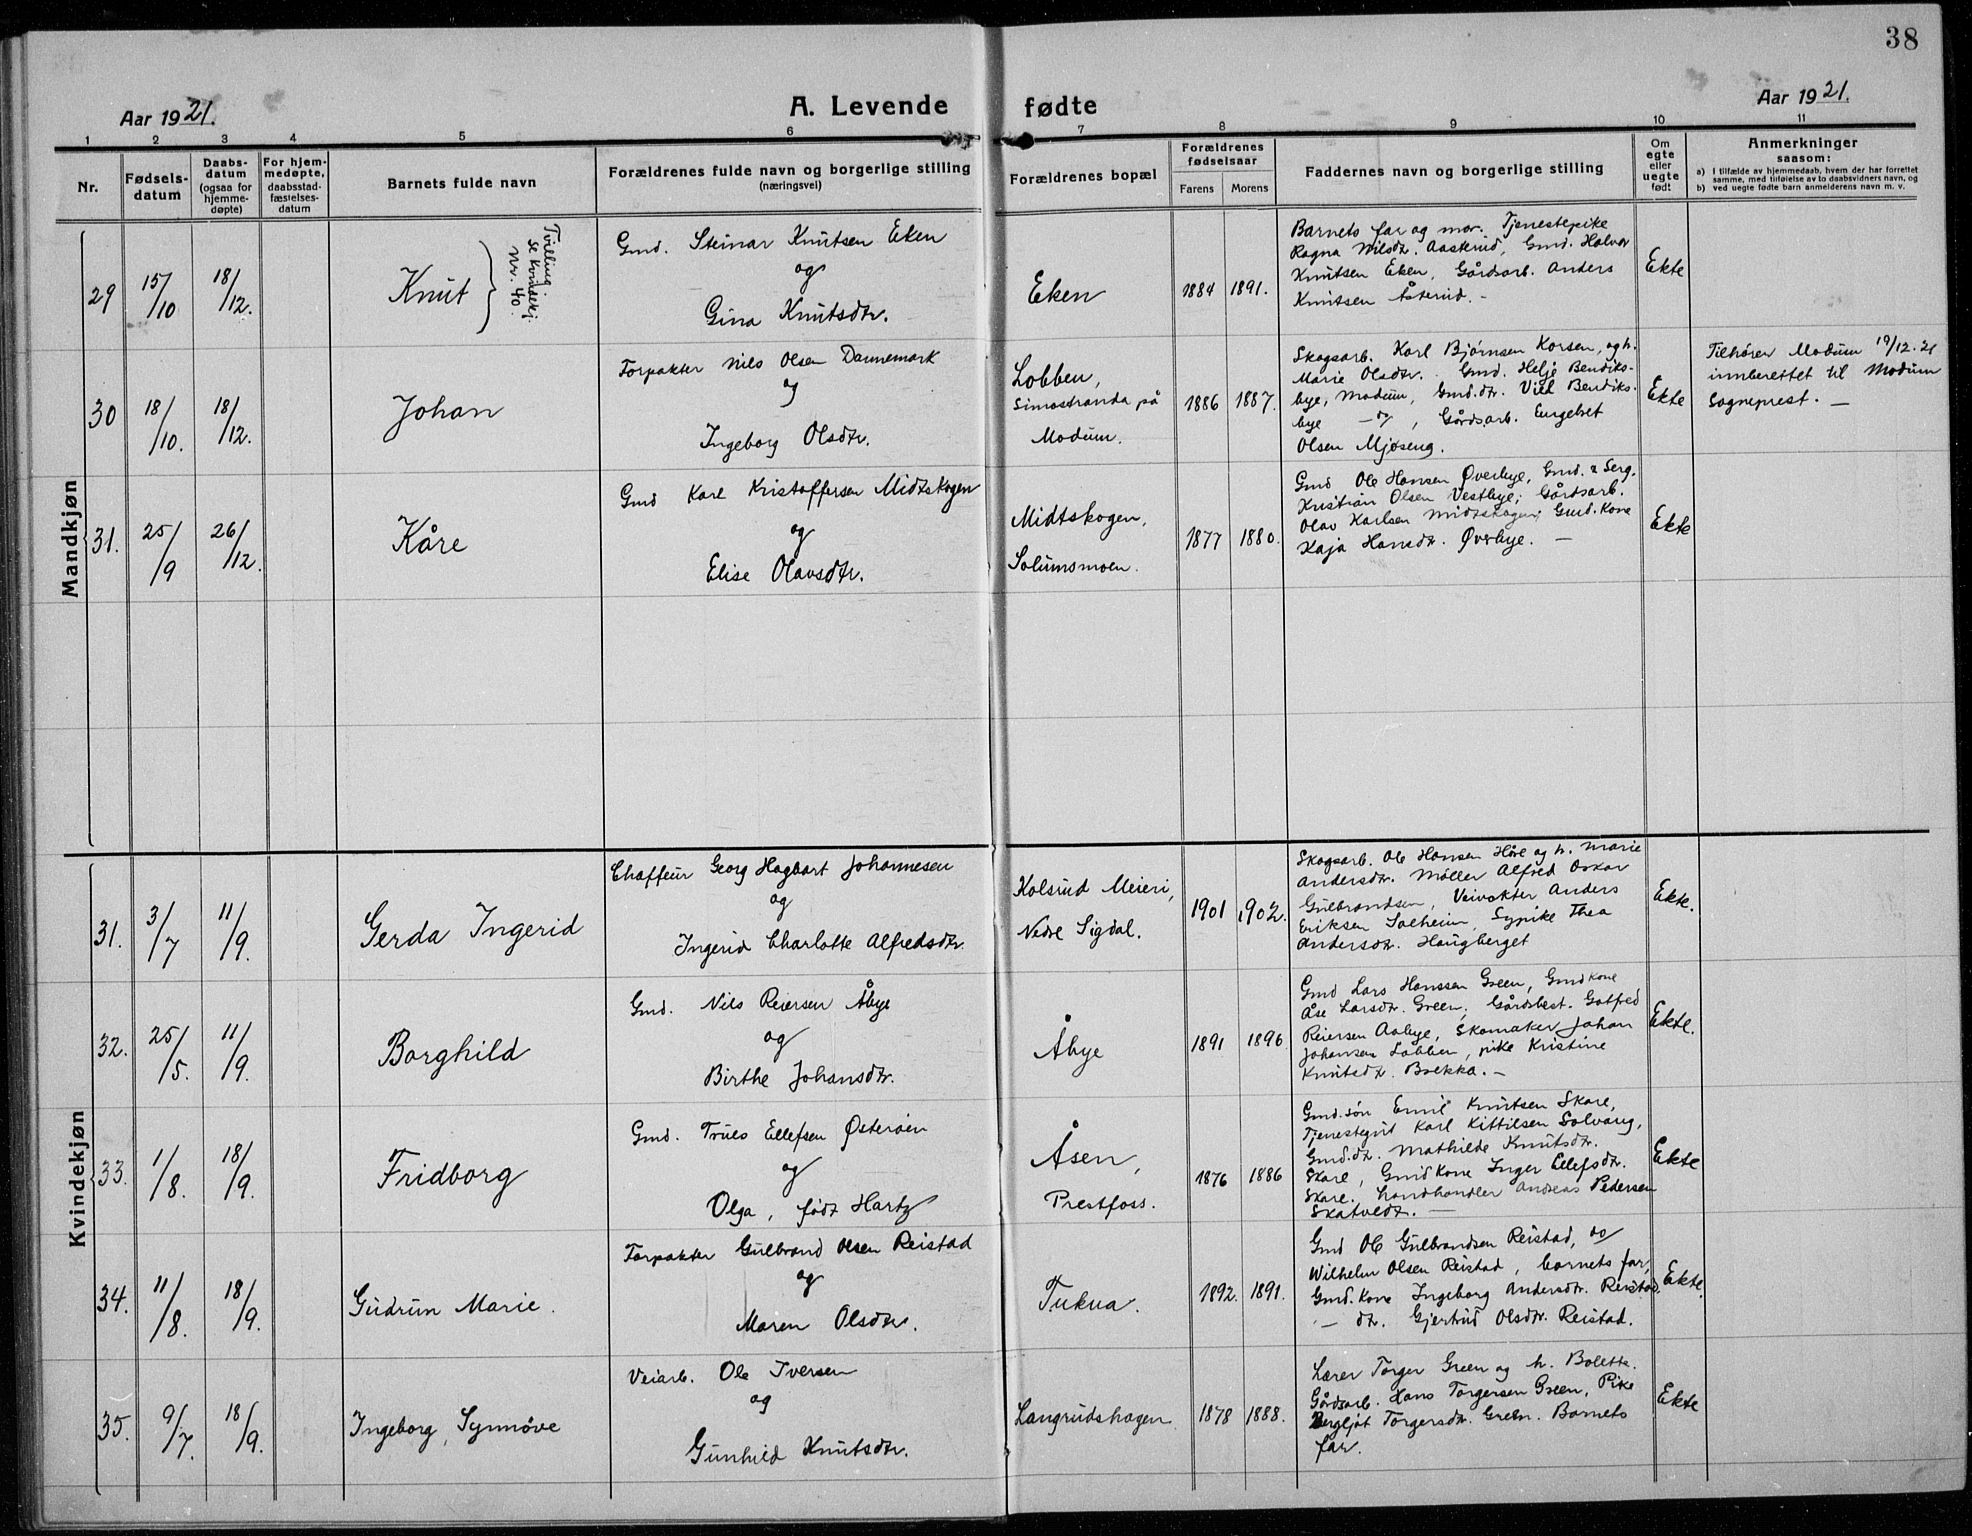 38
Aar 1921.
A. Levende fødte
Aar 1921.
1 2 3 4 5 6 7 8 9 10 11
Nr.
Fødselsdatum
Daabsdatum
(ogsaa for hjemmedøpte)
For hjemmedøpte, daabsstadfæstelsesdatum
Barnets fulde navn
Forældrenes fulde navn og borgerlige stilling
(næringsvei)
Forældrenes bopæl
Forældrenes fødselsaar
Farens
Morens
Faddernes navn og borgerlige stilling
Om egte eller uegte født
Anmerkninger
saasom:
a) I tilfælde av hjemmedaab, hvem der har forrettet
samme, med tilføielse av to daabsvidners navn, og
b) ved uegte fødte barn anmelderens navn m. v.
Mandkjøn
29
15/10
18/12.
Knut
Tvilling
se kvindekj.
Nr. 40.
Gmd. Steinar Knutsen Eken
og
Gina Knutsdtr.
Eken
1884
1891.
Barnets far og mor. Tjenestepike
Ragna Nilsdtr. Aasterud, Gmd. Halvor
Knutsen Eken, Gårdsarb. Anders
Knutsen Åsterud. -
Ekte
30
18/10.
18/12.
Johan
Forpakter Nils Olsen Dannemark
og
Ingeborg Olsdtr.
Lobben,
Simostranda på
Modum.
1886
1887.
Skogsarb. Karl Bjørnsen Korsen, og h.
Marie Olsdtr. Gmd. Helje Bendiks-
bye, Modum, Gmd.dtr. Bendiks-
bye, Gårdsarb. Engebret
Olsen Mjøseng.
Ekte
Tilhører Modum 19/12.21
innberettet til Modum
Sogneprest. —
31.
25/9
26/12.
Kåre
Gmd Karl Kristoffersen Midtskogen
og
Elise Olavsdtr.
Midtskogen,
Solumsmoen.
1877
1880.
Gmd Ole Hansen Øverbye, Gmd. & Serg.
Kristian Olsen Vestbye; Gårdsarb.
Olav Karlsen Midtskogen; Gmd. Kone
Kaja Hansdtr. Øverbye. —
Ekte
Kvindekjøn
31.
3/7
11/9.
Gerda Ingerid
Chaffeur Georg Hagbart Johannesen
og
Ingerid Charlotte Alfredsdtr.
Kolsrud Meieri,
Nedre Sigdal.
1901
1902.
Skogsarb. Ole Hansen Høre og h. Marie
Andersdtr. Møller Alfred Oskar
Gulbrandsen, Veivokter Anders
Eriksen Solheim, Sypike Thea
Andersdtr. Haugberget
Ekte.
32.
25/5.
11/9.
Borghild
Gmd. Nils Reiersen Åbye
og
Birthe Johansdtr.
Åbye
1891
1896.
Gmd Lars Hanssen Green, Gmd kone
Åse Larsdtr. Green, Gårdbest. Gotfred
Reiersen Aabye, Skomaker Johan
Johansen Lobben, pike Kristine
Knutsdtr. Brekka. —
Ekte.
33.
1/8.
18/9.
Fridborg
Gmd. Truls Ellefsen Østerøien
og
Olga, født Hartz
Åsen,
Prestfoss.
1876
1886
Gmd.søn Emil Knutsen Skare,
Tjenestegut Karl Kittilsen Solvang,
Gmd.dtr. Mathilde Knutsdtr.
Skare, Gmd Kone Inger Ellefsdtr.
Skare. Landhandler Andreas Pedersen
Skatvedt. —
Ekte
34.
11/8.
18/9.
Gudrun Marie.
Forpakter Gulbrand Olsen Reistad
og
Maren Olsdtr.
Tukua.
1892.
1891.
Gmd Ole Gulbrandsen Reistad, do
Wilhelm Olsen Reistad, barnets far,
Gmd. Kone Ingeborg Andersdtr. Reistad.
— dtr. Gjertrud Olsdtr. Reistad.
Ekte.
35.
9/7.
18/9.
Ingeborg Synnøve
Veiarb. Ole Iversen
og
Gunhild Knutsdtr.
Langrudshagen
1878
1888.
Lærer Torger Green og h. Bolette.
Gårdsarb. Hans Torgersen Green, Pike
Bergljot Torgersdtr. Green. Barnets
far.
Ekte